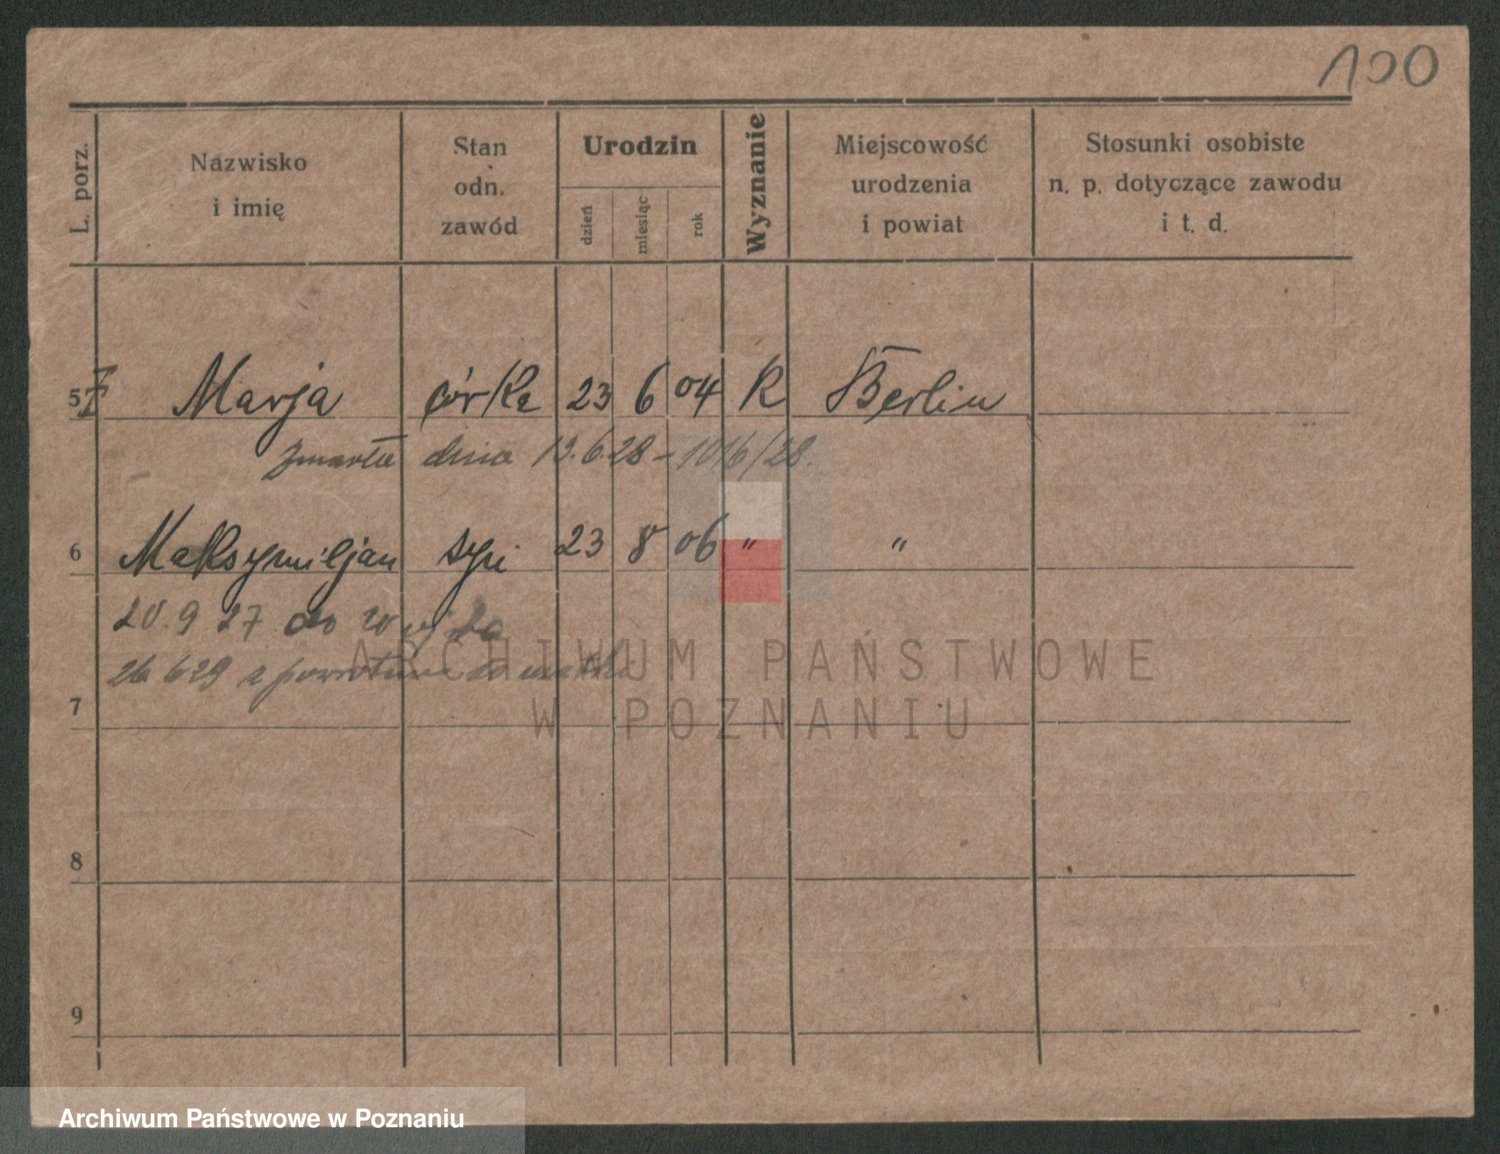 100
L. porz.
Nazwisko i imię
Stan odn. zawód
Urodzin
dzień miesiąc rok
Wyznanie
Miejscowość urodzenia i powiat
Stosunki osobiste n. p. dotyczące zawodu i t. d.
5 Marja córka 23 6 04 R Berlin
zmarła dnia 6 28 - 10/6/28.
6 Maksymiljan syn 23 8 06 " "
20. 9 27 do wojska
26 6 29 z powrotem do matki
ARCHIWUM PAŃSTWOWE
W POZNANIU
7
8
9
Archiwum Państwowe w Poznaniu